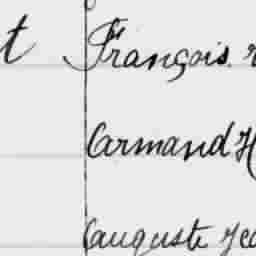 t François.
Armand H
Auguste Jea